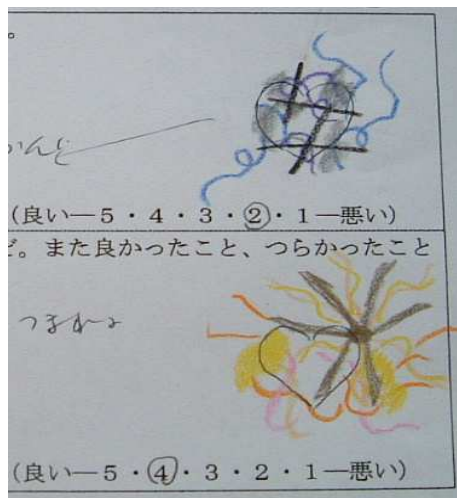 。
かんじ
(良い―5・4・3・②・1―悪い)
ど。また良かったこと、つらかったこと
(良い―5・④・3・2・1―悪い)